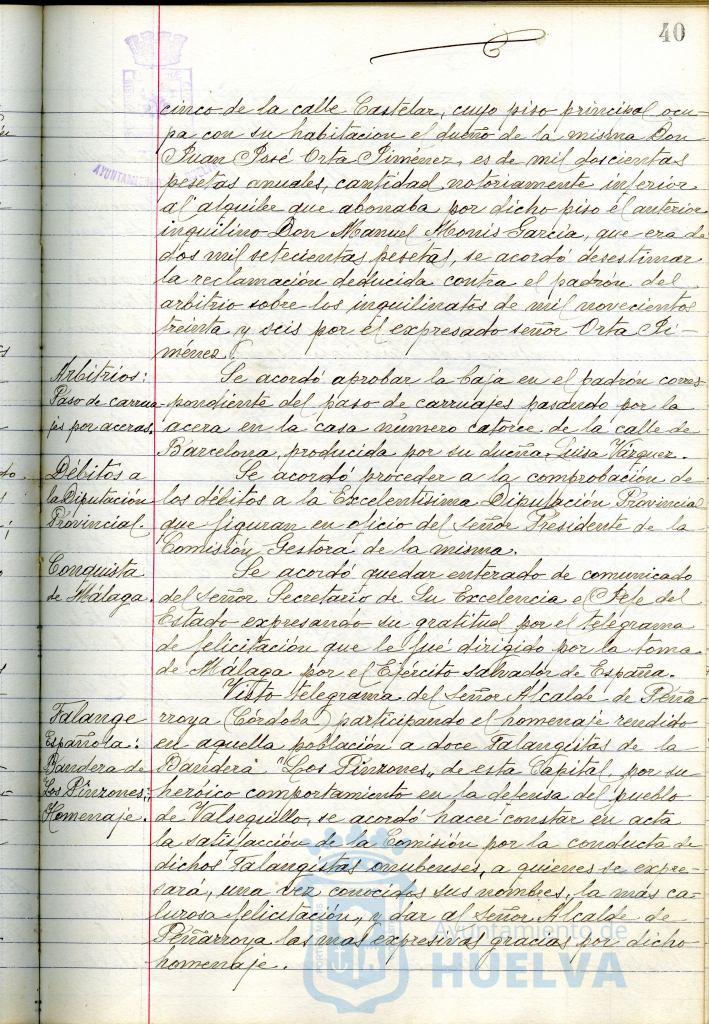 40
cinco de la calle Castelar, cuyo piso principal ocu-
pa con su habitacion el dueño de la misma Don
Juan José Orta Jiménez, es de mil doscientas
pesetas anuales, cantidad notoriamente inferior
al alquiler que abonaba por dicho piso el anterior
inquilino Don Manuel Monis García, que era de
dos mil setecientas pesetas, se acordó desestimar
la reclamación deducida contra el padrón del
arbitrio sobre los inquilinatos de mil novecientos
treinta y seis por el expresado señor Orta Ji-
ménez.
Arbitrios:
Paso de carrua-
jes por aceras.
Se acordó aprobar la baja en el padrón corres-
pondiente del paso de carruajes pasando por la
acera en la casa número catorce de la calle de
Barcelona, producida por su dueña Luisa Vázquez.
Débitos a
la Diputación
Provincial.
Se acordó proceder a la comprobación de
los débitos a la Excelentísima Diputación Provincial
que figuran en oficio del Señor Presidente de la
Comisión Gestora de la misma.
Conquista
de Málaga.
Se acordó quedar enterado de comunicado
del señor Secretario de Su Excelencia el Jefe del
Estado expresando su gratitud por el telegrama
de felicitación que le fué dirigido por la toma
de Málaga por el Ejército salvador de España.
Falange
Española:
Bandera de
Los Pinzones:
Homenaje.
Visto telegrama del Señor Alcalde de Peña-
rroya (Córdoba) participando el homenaje rendido
en aquella población a doce Falangistas de la
Bandera "Los Pinzones" de esta Capital, por su
heróico comportamiento en la defensa del pueblo
de Valsequillo, se acordó hacer constar en acta
la satisfacción de la Comisión por la conducta de
dichos Falangistas onubenses, a quienes se expre-
sará, una vez conocidos sus nombres, la más ca-
lurosa felicitación, y dar al Señor Alcalde de
Peñarroya las mas expresivas gracias por dicho
homenaje.
Ayuntamiento de
HUELVA